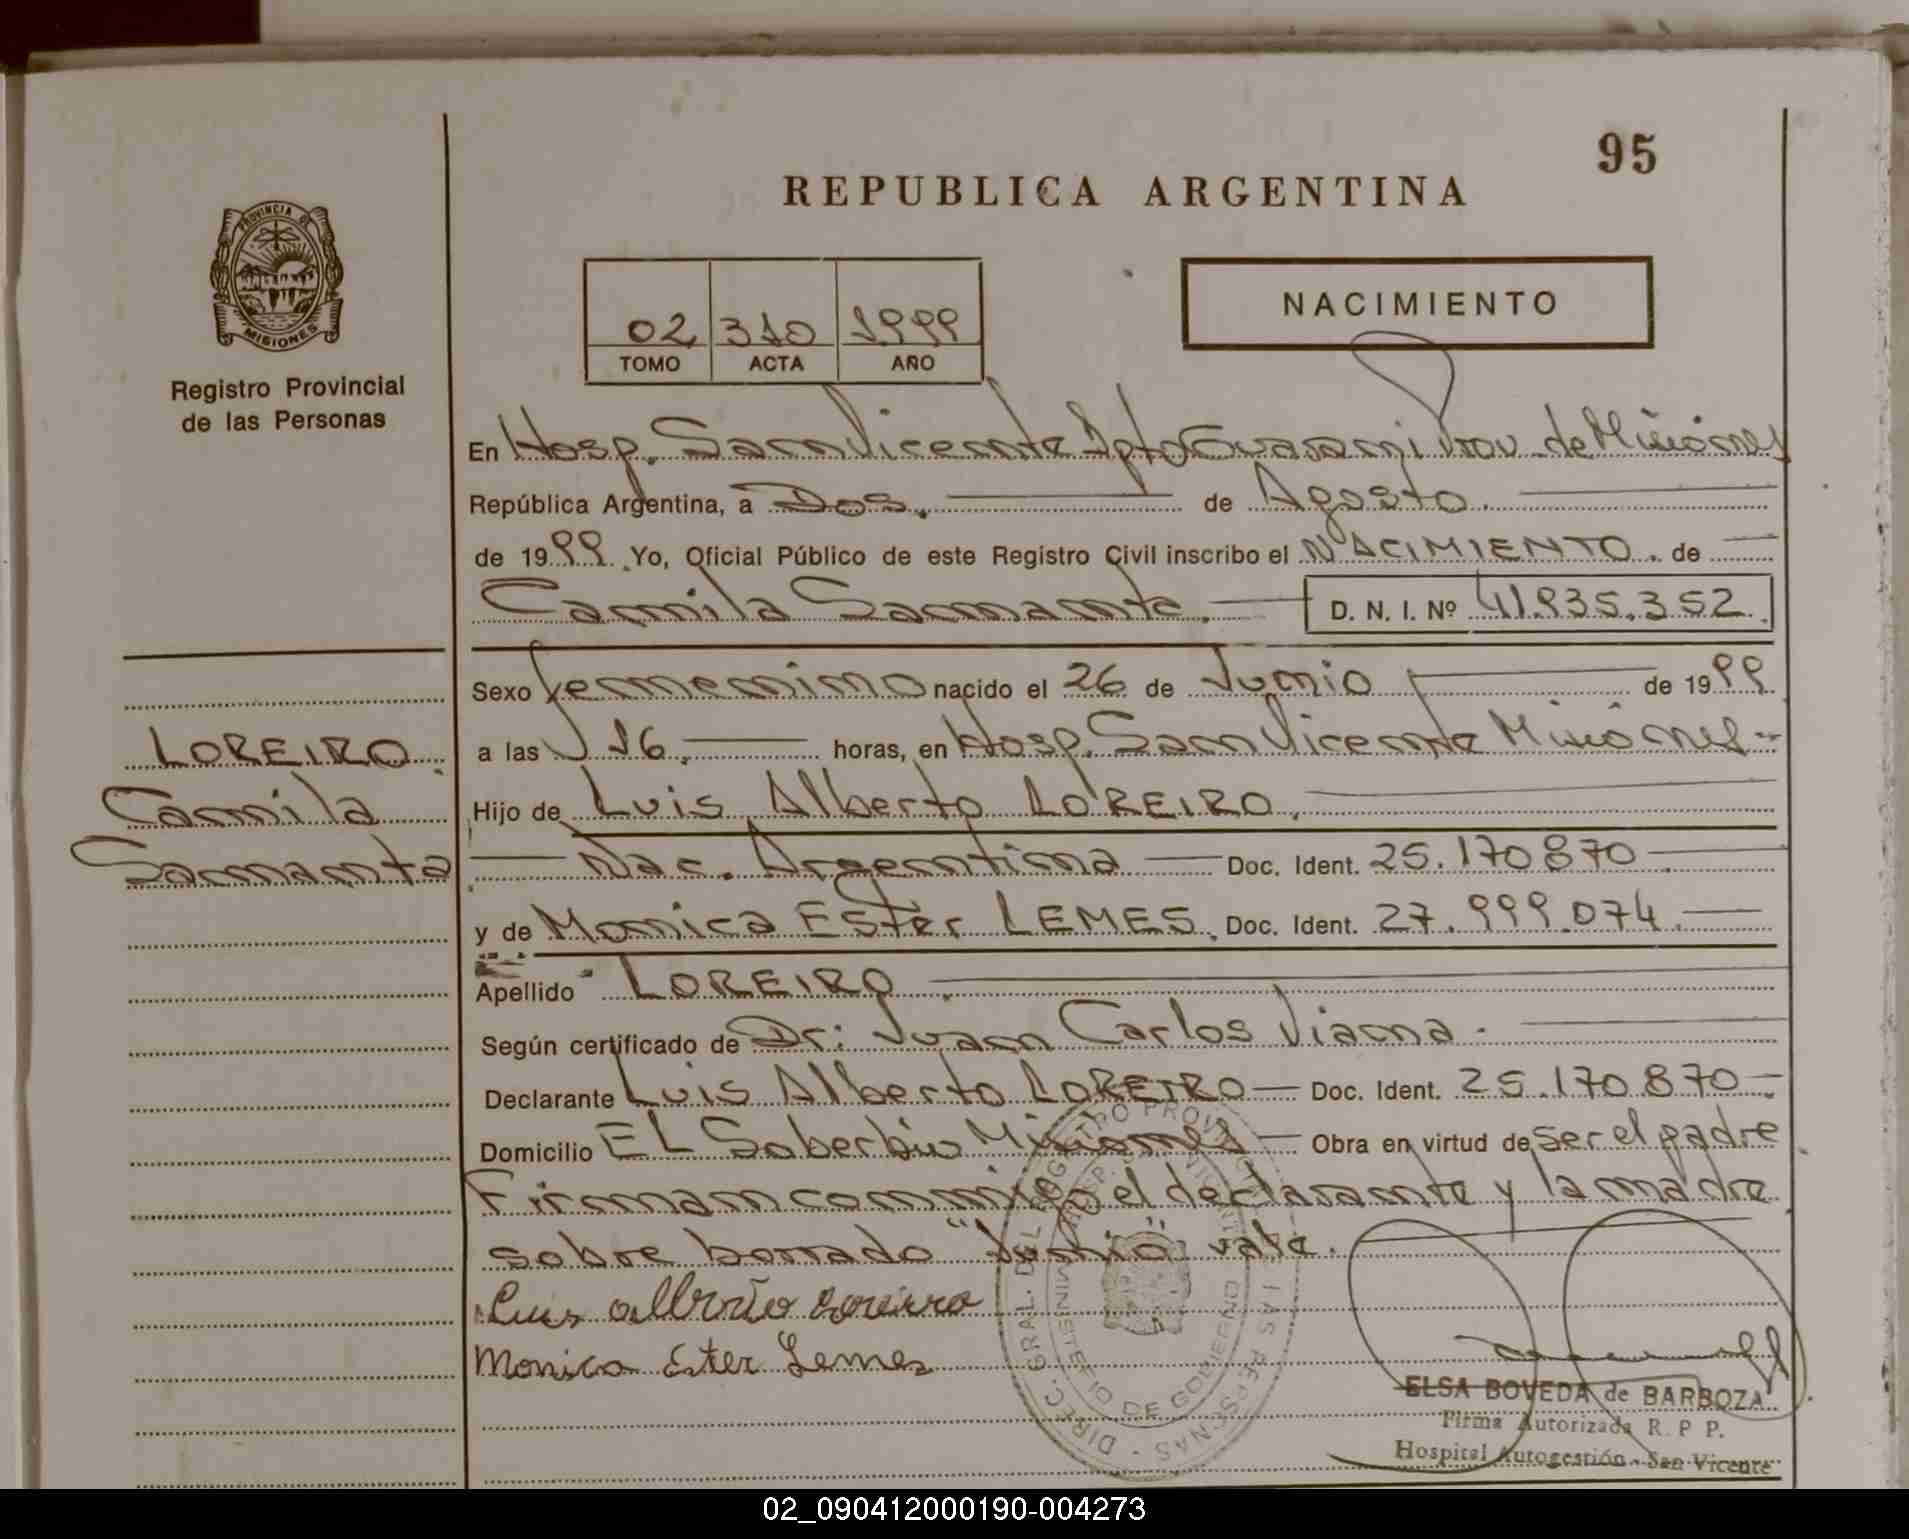 95
REPUBLICA ARGENTINA
PROVINCIA DE
MISIONES
Registro Provincial
de las Personas
02 310 1999
TOMO ACTA AÑO
NACIMIENTO
En Hosp. San Vicente Dpto Guarani Prov. de Misiones
República Argentina, a Dos. de Agosto.
de 1999. Yo, Oficial Público de este Registro Civil inscribo el NACIMIENTO. de
Camila Samanta. D. N. I. Nº 41.835.352.
Sexo femenino nacido el 26 de Junio de 1999.
LOREIRO. a las 16. horas, en Hosp. San Vicente Misiones-
Camila Hijo de Luis Alberto LOREIRO.
Samanta Nac. Argentina Doc. Ident. 25.170870
y de Monica Ester LEMES. Doc. Ident. 27.999.074.
Apellido LOREIRO.
Según certificado de Dr: Juan Carlos Viana.
Declarante Luis Alberto LOREIRO Doc. Ident. 25.170.870
Domicilio EL Soberbio Misiones Obra en virtud de ser el padre
Firman conmigo el declarante y la madre
sobre borrado "Junio" vale.
Luis Alberto Loreiro
Monica Ester Lemes
DIREC. GRAL. DEL REGISTRO PROVINCIAL DE LAS PERSONAS
MINISTERIO DE GOBIERNO
ELSA BOVEDA de BARBOZA
Firma Autorizada R. P P.
Hospital Autogestión - San Vicente
02_090412000190-004273